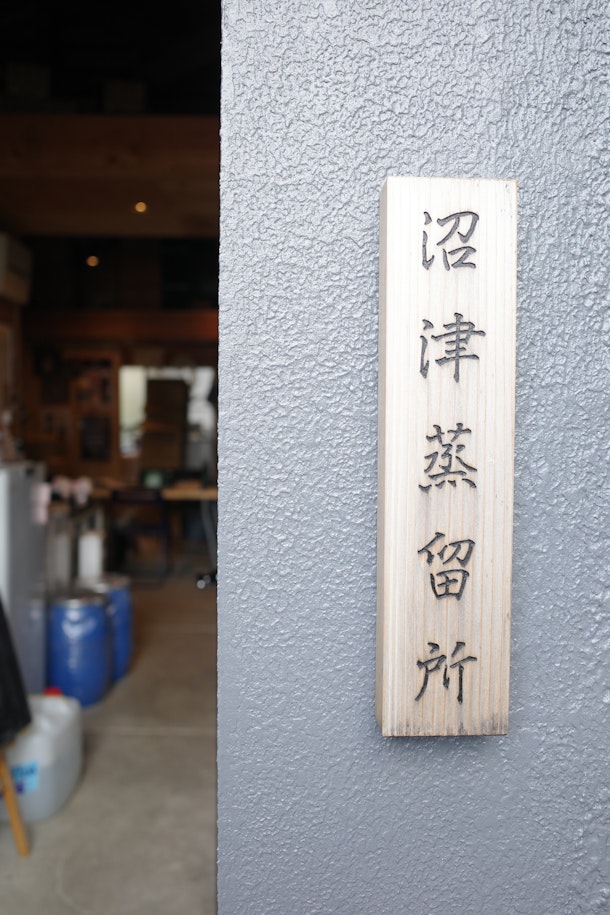 沼津蒸留所